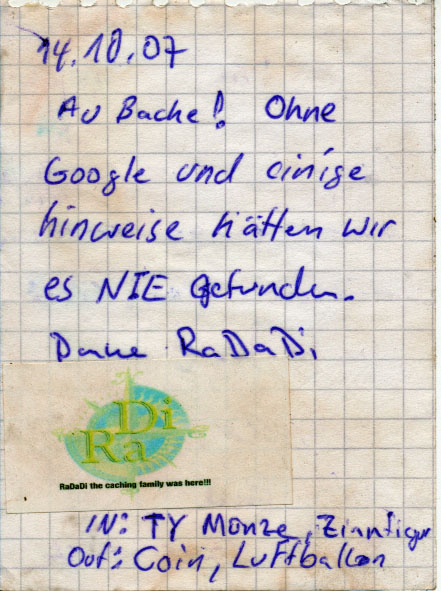 14.10.07
Au Backe! Ohne
Google und einige
hinweise hätten wir
es NIE gefunden.
Danke RaDaDi
Di
Ra
RaDaDi the caching family was here!!!
IN: TY Münze, Zinnfigur
Out: Coin, Luftballon